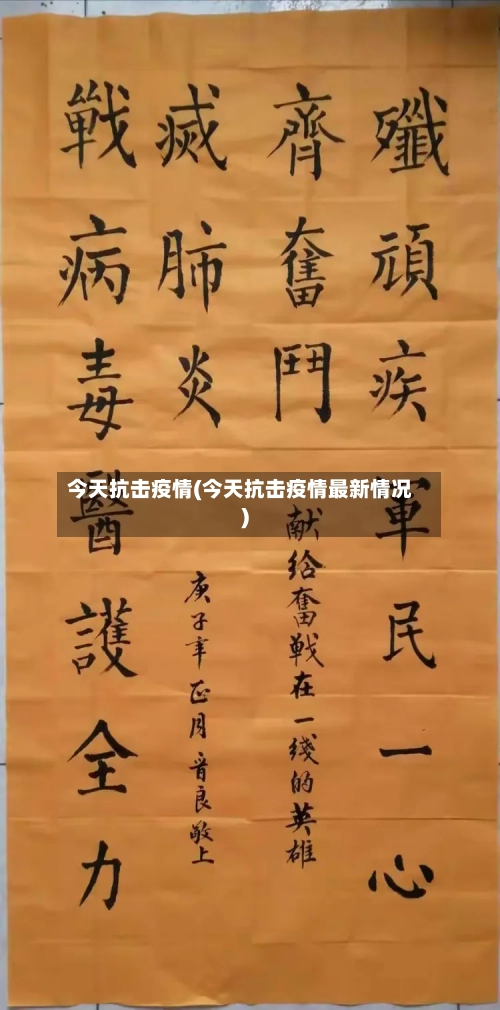 殲頑疾軍民一心
齊奮鬥
献给奮戰在一綫的英雄
戰病毒醫護全力
滅肺炎
庚子年正月晋良敬上
今天抗击疫情(今天抗击疫情最新情况
)